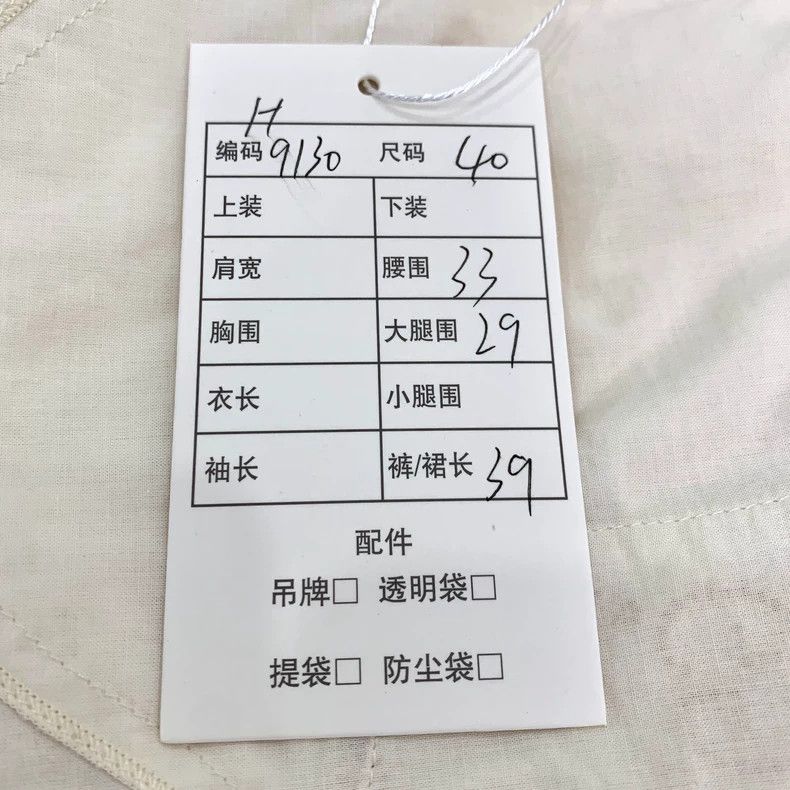 H
编码 9130 尺码 40
上装 下装
肩宽 腰围 33
胸围 大腿围 29
衣长 小腿围
袖长 裤/裙长 39
配件
吊牌□ 透明袋□
提袋□ 防尘袋□